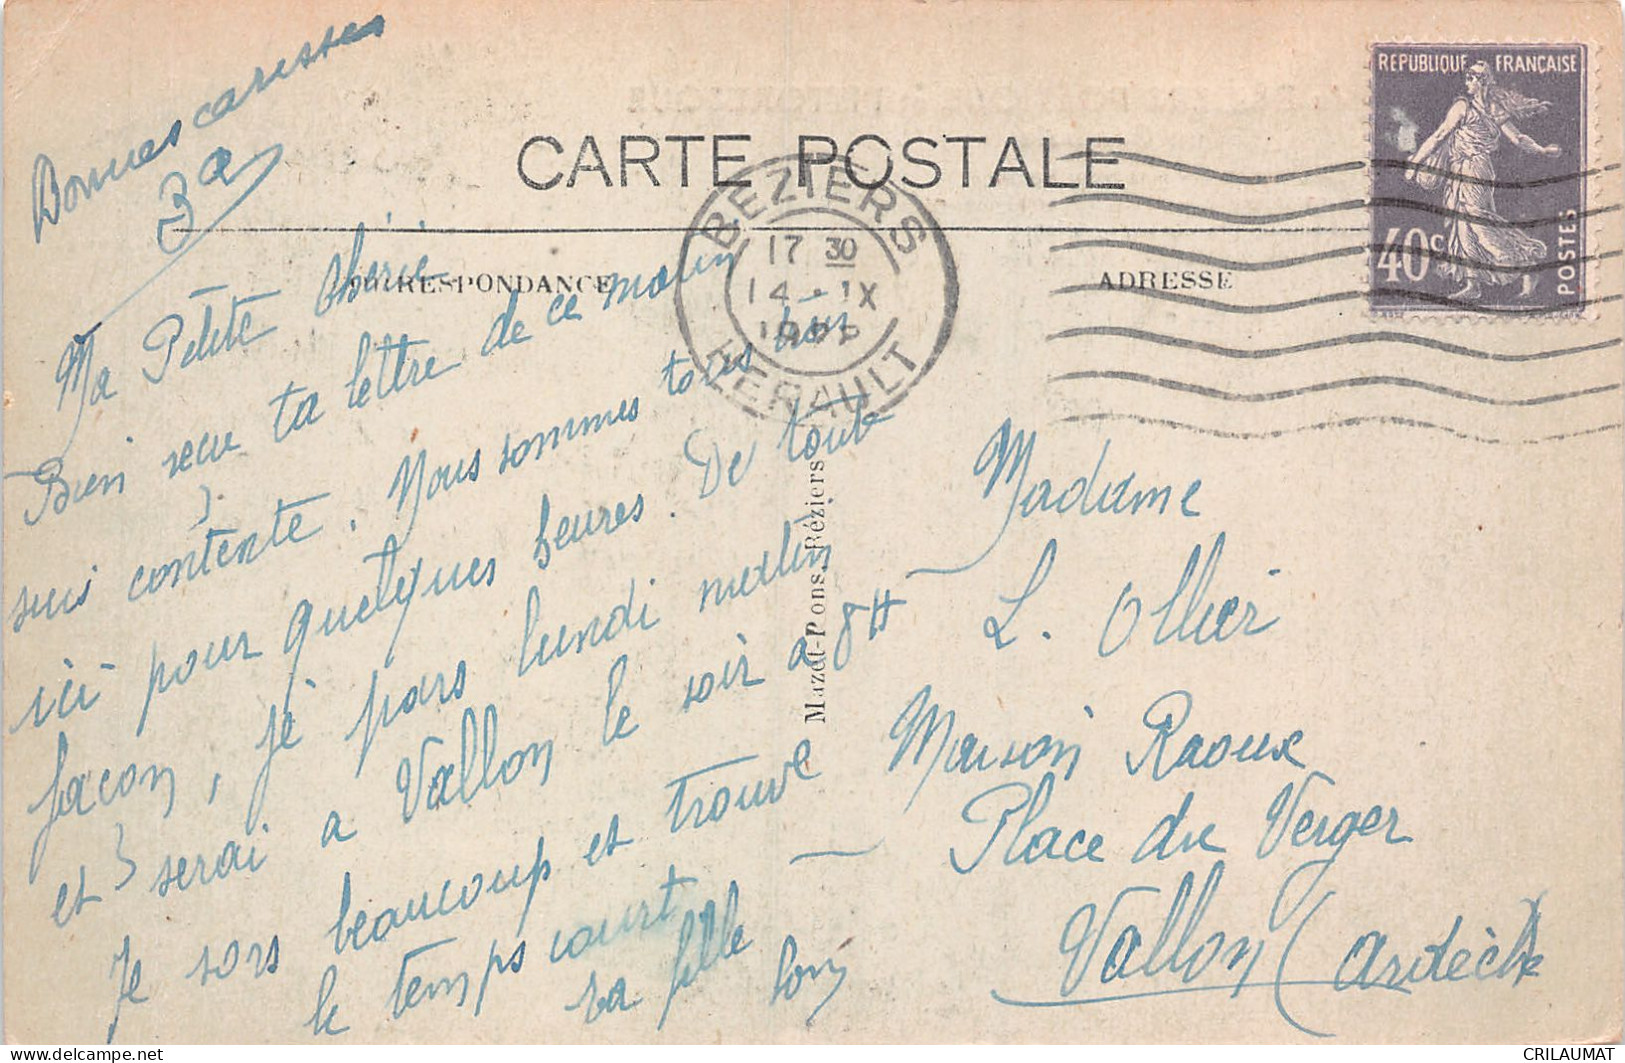 Bonnes caresses
RÉPUBLIQUE FRANÇAISE
40c
POSTES
CARTE POSTALE
BEZIERS
17 30
14 - IX
HERAULT
CORRESPONDANCE
ADRESSE
Ma Petite Chérie
Bien reçu ta lettre de ce matin
suis contente. Nous sommes tous
ici pour quelques heures. De toute
façon, je pars lundi matin
et serai a Vallon le soir a 8H
Je sors beaucoup et trouve
le temps court
ta fille
Mazet-Pons, Béziers
Madame
L. Ollier
Maison Raoux
Place du Verger
Vallon (Ardèche
delcampe.net
CRILAUMAT